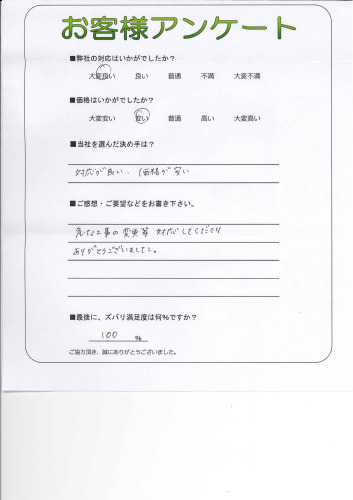 お客様アンケート
■弊社の対応はいかがでしたか？
大変良い 良い 普通 不満 大変不満
■価格はいかがでしたか？
大変安い 安い 普通 高い 大変高い
■当社を選んだ決め手は？
対応が良い、価格が安い
■ご感想・ご要望などをお書き下さい。
急な工事の変更等 対応してくださり
ありがとうございました。
■最後に、ズバリ満足度は何%ですか？
100 %
ご協力頂き、誠にありがとうございました。